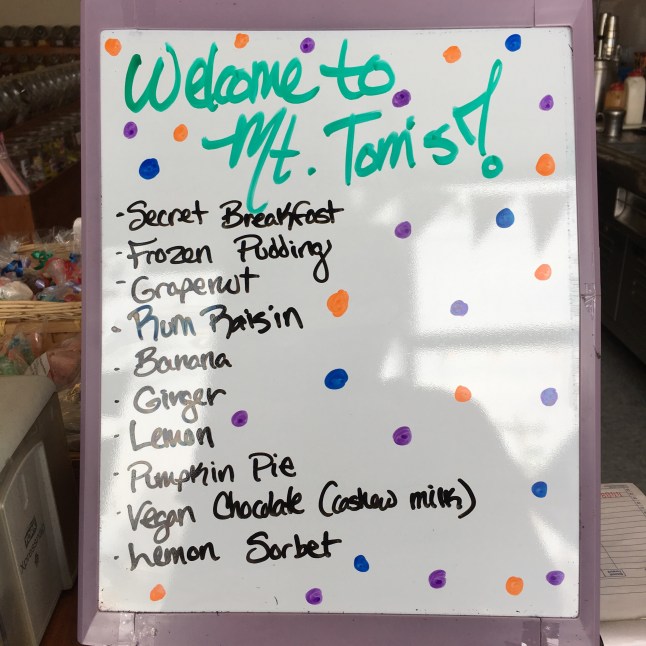 Welcome to
Mt. Tom's!
- Secret Breakfast
- Frozen Pudding
- Grapenut
- Rum Raisin
- Banana
- Ginger
- Lemon
- Pumpkin Pie
- Vegan Chocolate (cashew milk)
- Lemon Sorbet